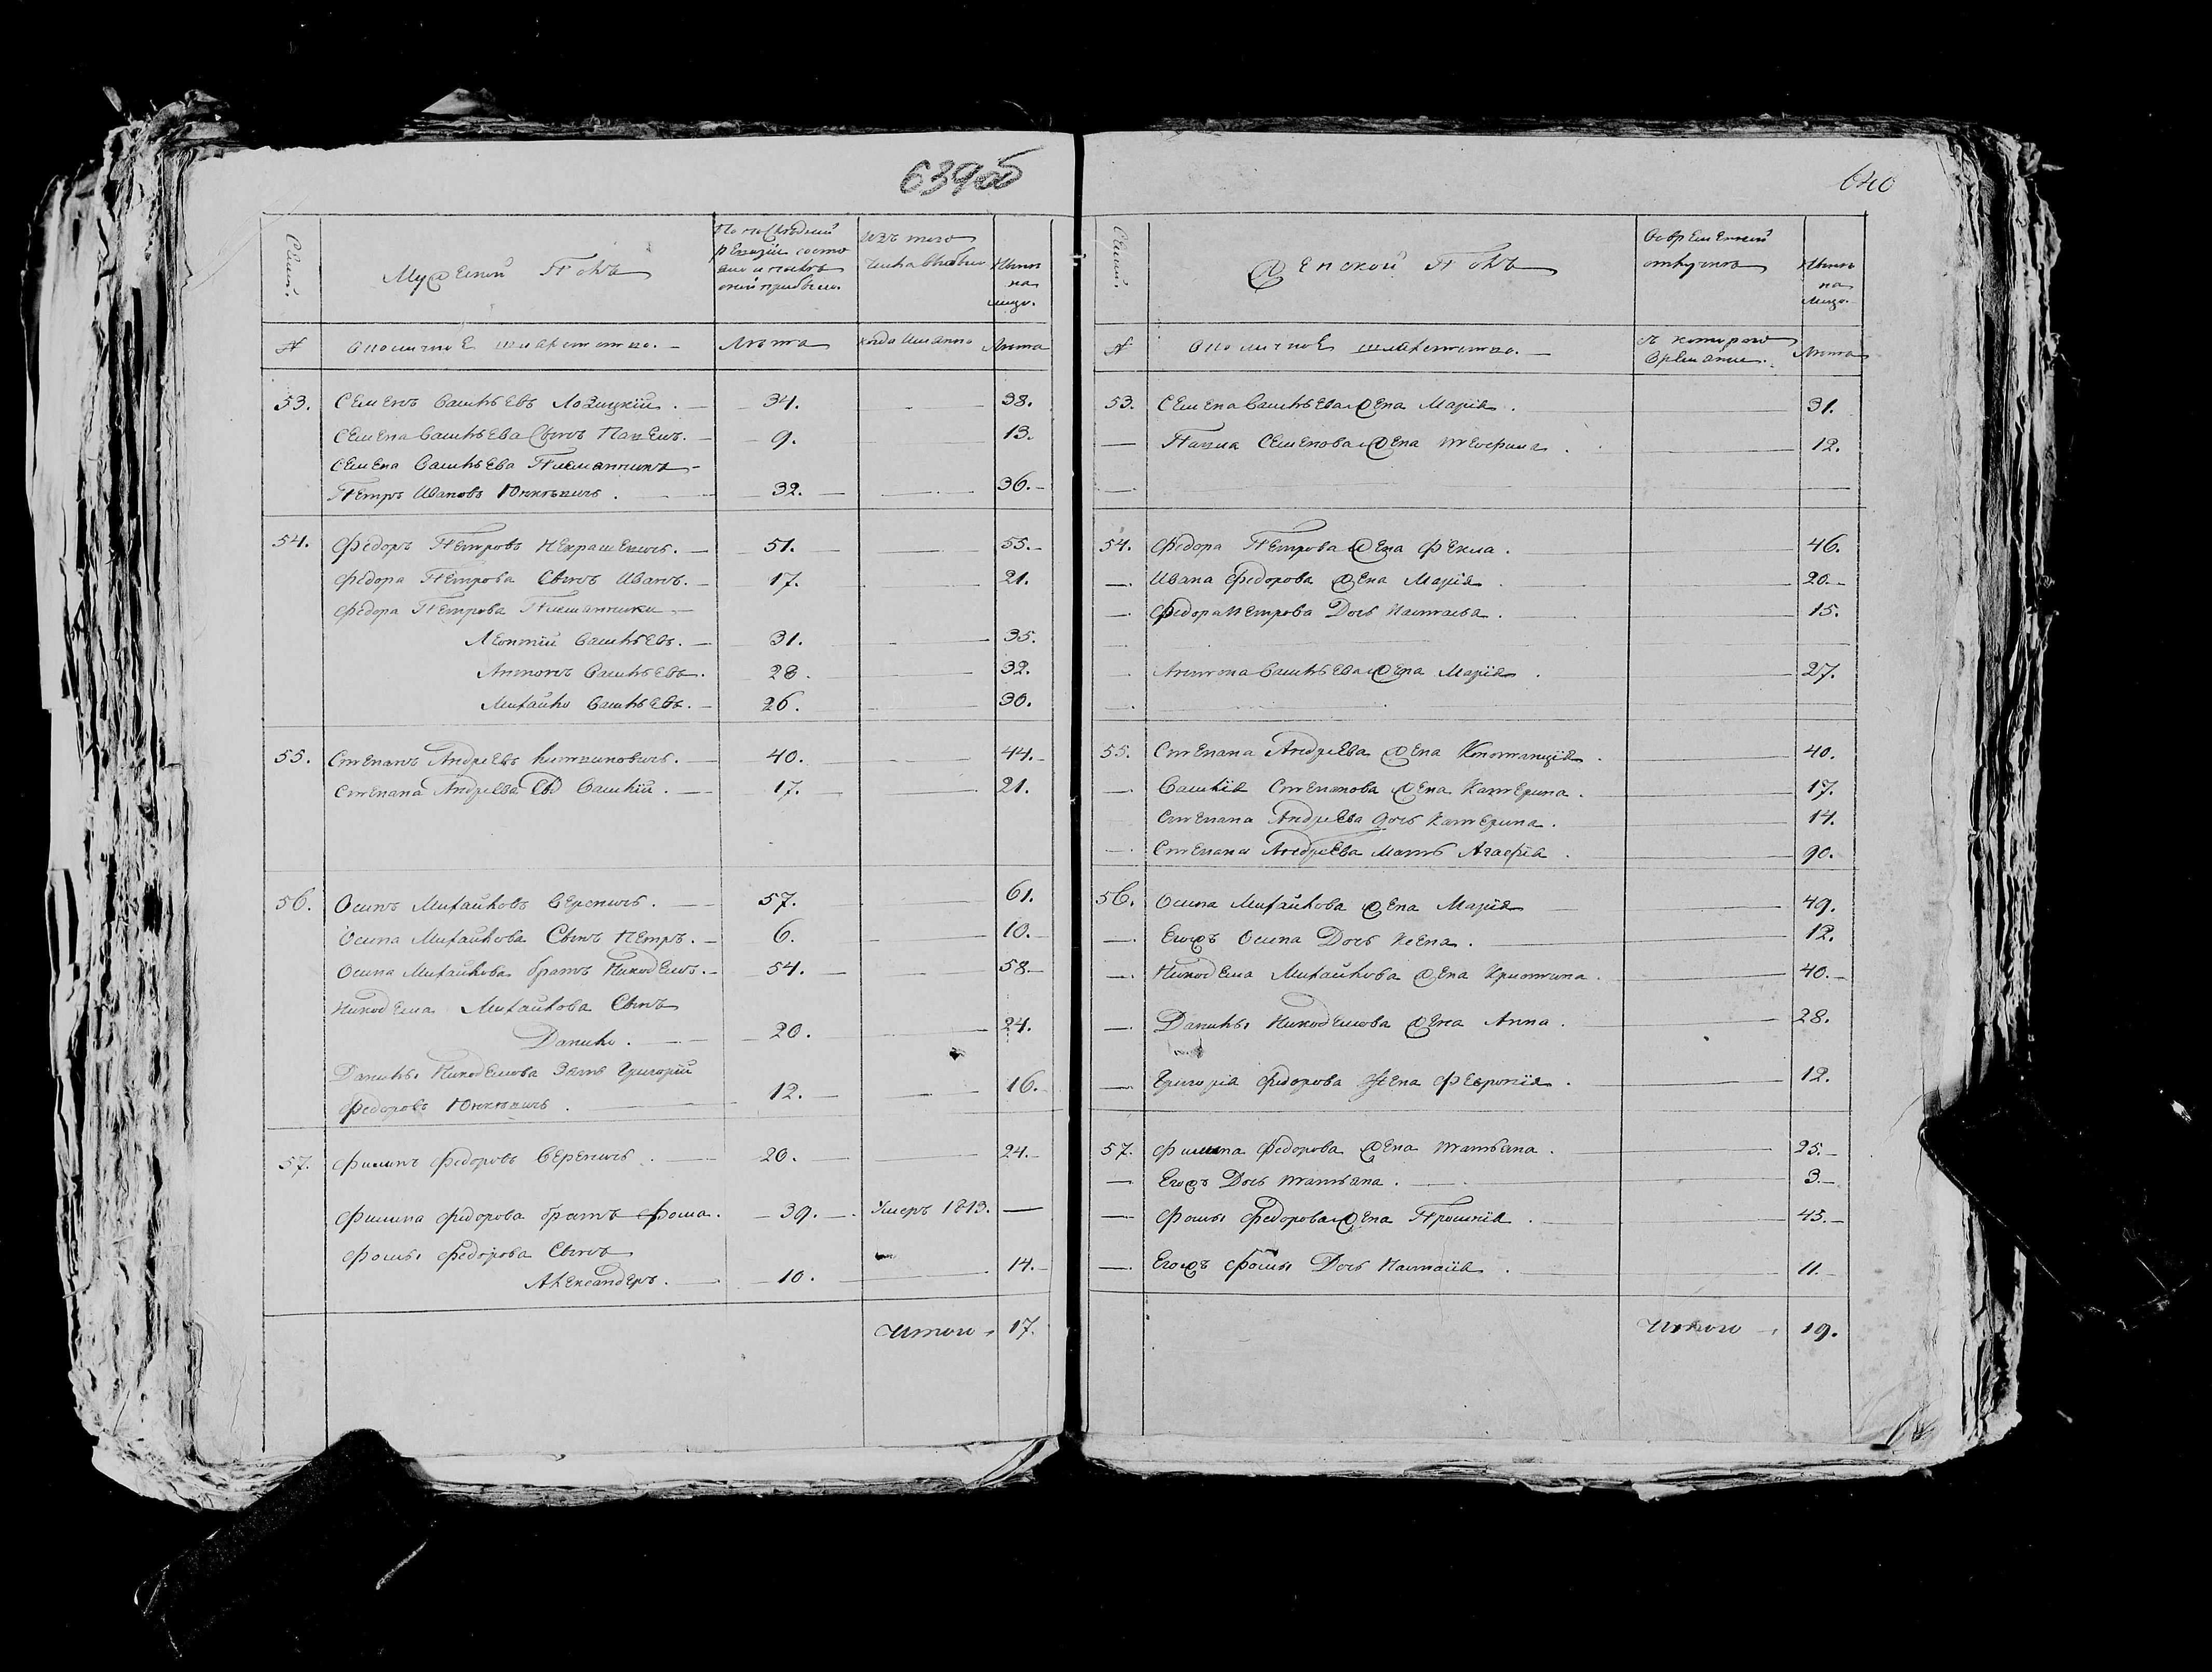 639об
Семей.
Мужеской Полъ
По последней
ревизіи состо
яло и после
оной прибыло.
изъ того
числа выбыло
Ныне
на
лицо.
N
Лета
когда имянно
Лета
53. Семенъ Васильевъ Лозицкій. 34. 38.
Семена Васильева Сынъ Павелъ. 9. 13.
Семена Васильева Племянникъ
Петръ Ивановъ 32. 36.
54. Федоръ Петровъ Некрашевичь. 51. 55.
Федора Петрова Сынъ Иванъ. 17. 21.
Федора Петрова Племянники
Леонтій Васильевъ. 31. 35.
Антонъ Васильевъ. 28. 32.
Михайло Васильевъ. 26. 30.
55. Степанъ Андреевъ 40. 44.
Степана Андреева Сынъ Василій. 17. 21.
56. Осипъ Михайловъ 57. 61.
Осипа Михайлова Сынъ Петръ. 6. 10.
Осипа Михайлова братъ Никодемъ. 54. 58.
Никодема Михайлова Сынъ
Данило. 20. 24.
Данилы Никодемова Зять Григорій
Федоровъ 12. 16.
57. Филипъ Федоровъ 20. 24.
Филипа Федорова братъ Фома. 39. Умеръ 1813. —
Фомы Федорова Сынъ
Александеръ. 10. 14.
Итого 17.
640
Семей.
Женской Полъ
Во временной
отлучке
Ныне
на
лицо.
N
съ котораго
времяни.
Лета
53. Семена Васильева жена Марія. 31.
— Павла Семенова жена 12.
54. Федора Петрова жена Фекла. 46.
— Ивана Федорова жена Марія 20.
— Федора Петрова Дочь Настасья. 15.
Антона Васильева жена Марія 27.
55. Степана Андреева жена Констанція 40.
— Василія Степанова жена Катерина. 17.
Степана Андреева дочь Катерина. 14.
— Степана Андреева мать Агафія 90.
56. Осипа Михайлова жена Марія 49.
— Егожъ Осипа Дочь 12.
— Никодема Михайлова жена Христина. 40.
— Данилы Никодемова жена Анна. 28.
— Григорія Федорова жена Февронія. 12.
57. Филипа Федорова жена Татьяна. 25.
— Егожъ Дочь Татьяна. 3.
— Фомы Федорова жена 45.
— Егожъ Фомы Дочь Настасія. 11.
Итого 19.